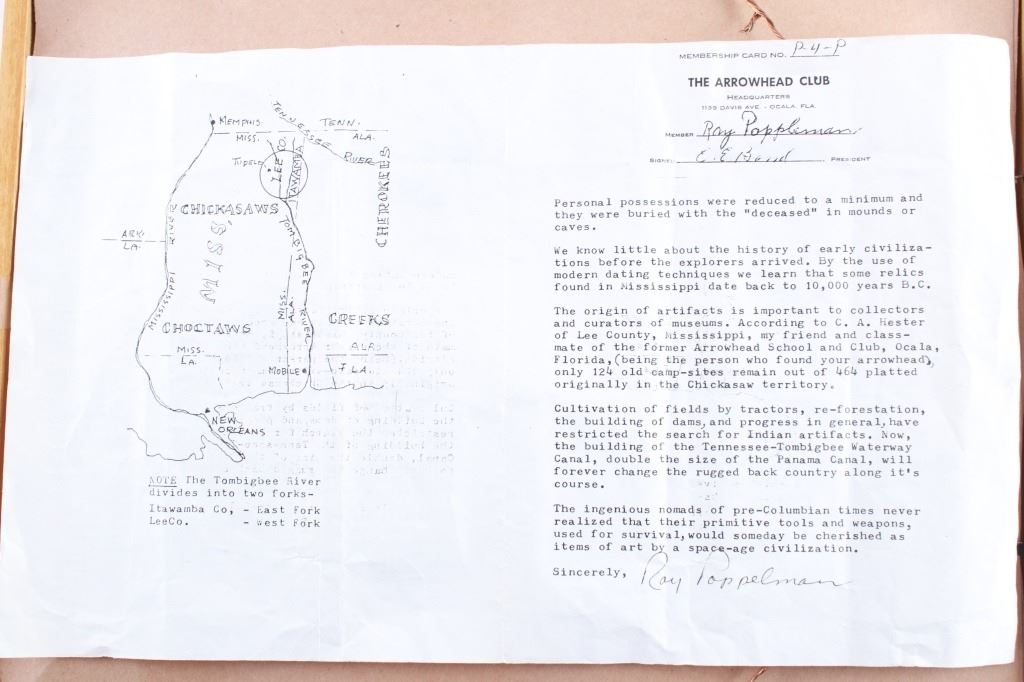 MEMPHIS
MISS.
TENNESSEE
RIVER
TENN.
ALA.
TUPELO
LEE CO.
ITAWAMBA
CHEROKEES
CHICKASAWS
ARK.
LA.
MISS.
MISSISSIPPI RIVER
TOMBIGBEE RIVER
MISS.
ALA.
CHOCTAWS
CREEKS
MISS.
LA.
ALA.
FLA.
MOBILE
NEW
ORLEANS
NOTE The Tombigbee River
divides into two forks-
Itawamba Co, - East Fork
LeeCo. - West Fork
MEMBERSHIP CARD NO. P-4-P
THE ARROWHEAD CLUB
HEADQUARTERS
1139 DAVIS AVE. - OCALA, FLA.
MEMBER Ray Poppleman
SIGNED E. E. PRESIDENT
Personal possessions were reduced to a minimum and
they were buried with the "deceased" in mounds or
caves.
We know little about the history of early civiliza-
tions before the explorers arrived. By the use of
modern dating techniques we learn that some relics
found in Mississippi date back to 10,000 years B.C.
The origin of artifacts is important to collectors
and curators of museums. According to C. A. Hester
of Lee County, Mississippi, my friend and class-
mate of the former Arrowhead School and Club, Ocala,
Florida, (being the person who found your arrowhead),
only 124 old camp-sites remain out of 464 platted
originally in the Chickasaw territory.
Cultivation of fields by tractors, re-forestation,
the building of dams, and progress in general, have
restricted the search for Indian artifacts. Now,
the building of the Tennessee-Tombigbee Waterway
Canal, double the size of the Panama Canal, will
forever change the rugged back country along it's
course.
The ingenious nomads of pre-Columbian times never
realized that their primitive tools and weapons,
used for survival, would someday be cherished as
items of art by a space-age civilization.
Sincerely, Ray Poppelman